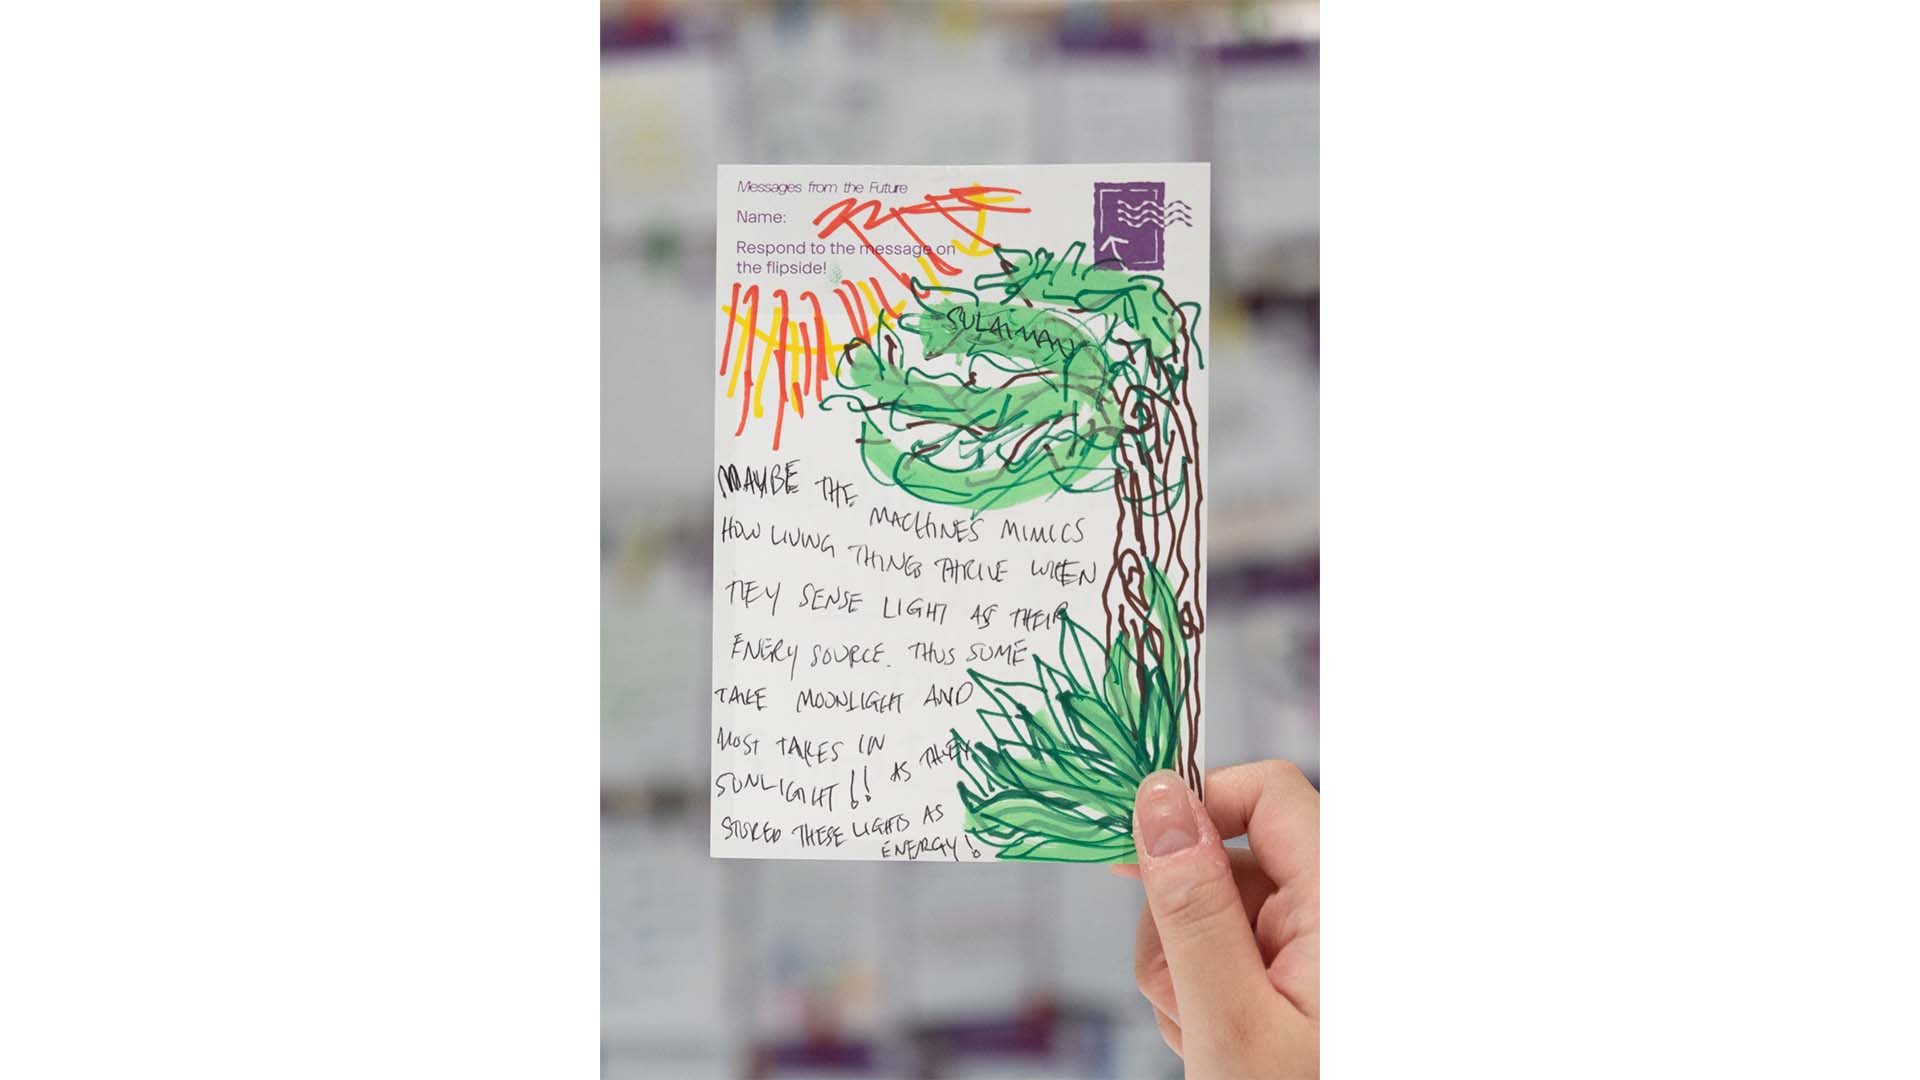 Messages from the Future
Name:
Respond to the message on
the flipside!
SULAIMAN
MAYBE THE MACHINES MIMICS
HOW LIVING THINGS THRIVE WHEN
THEY SENSE LIGHT AS THEIR
ENERY SOURCE. THUS SOME
TAKE MOONLIGHT AND
MOST TAKES IN
SUNLIGHT!! AS THEY
STORED THESE LIGHTS AS
ENERGY!